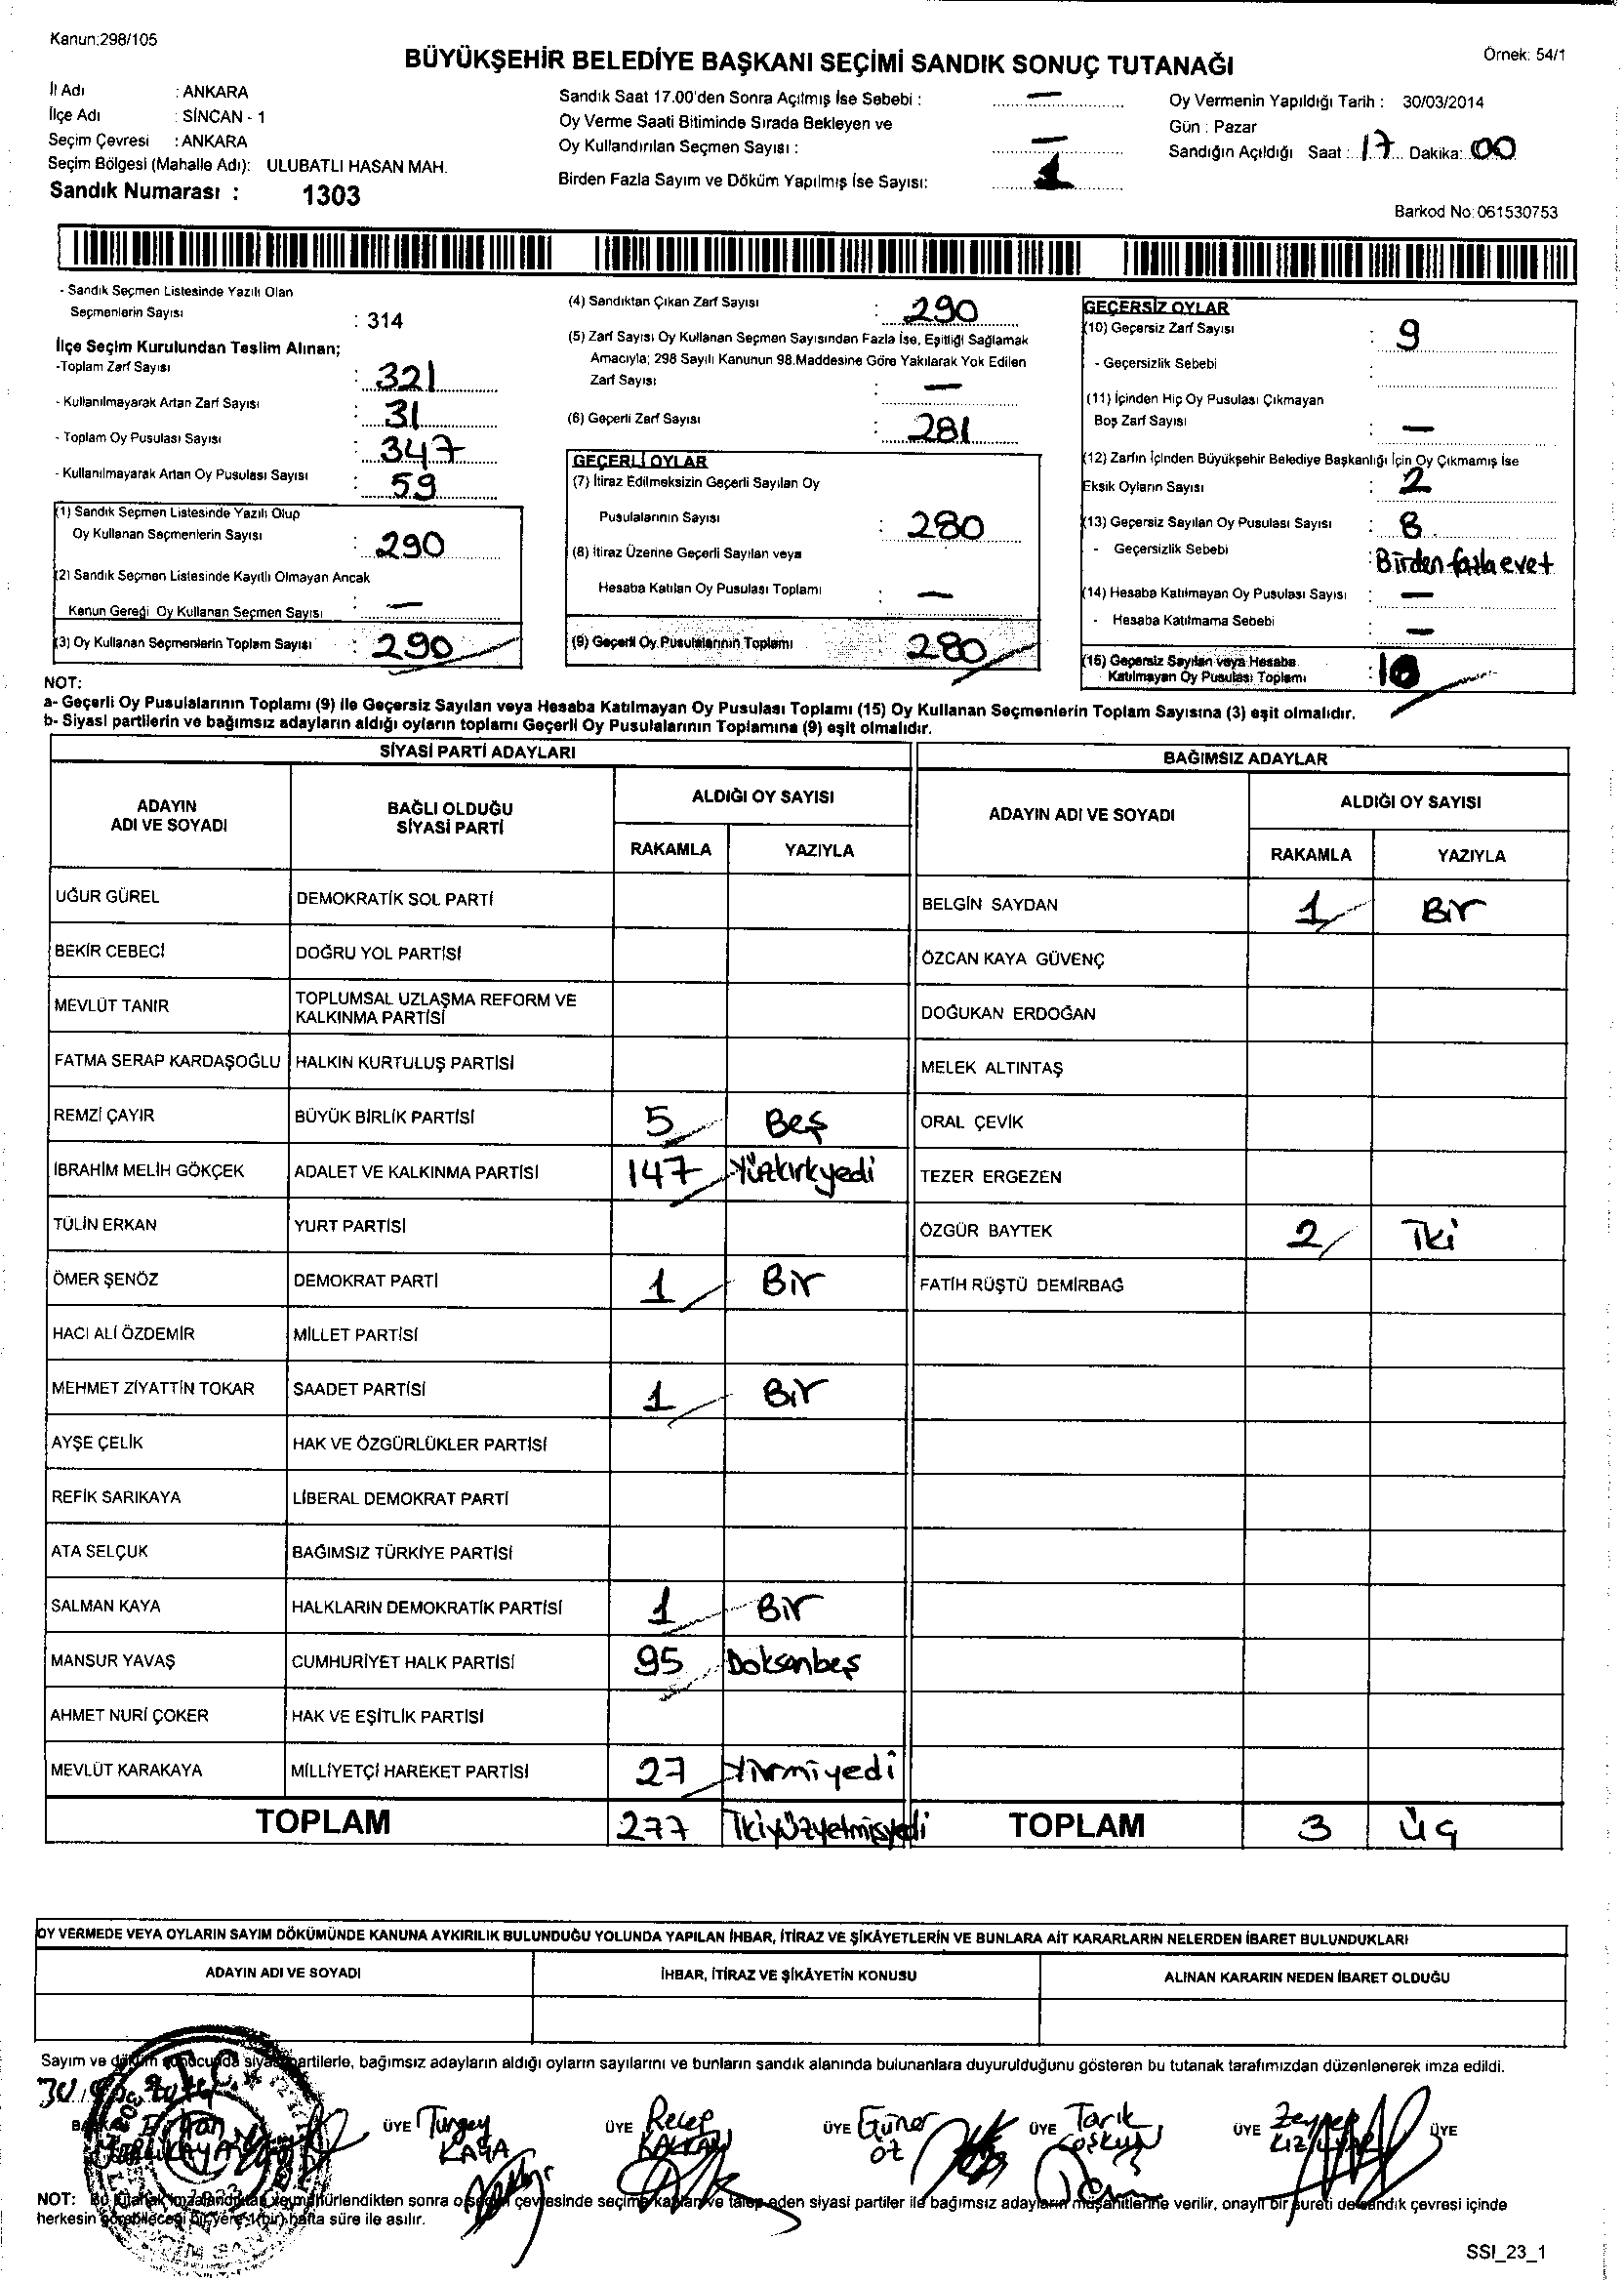 Kanun:298/105
Örnek: 54/1
BÜYÜKŞEHİR BELEDİYE BAŞKANI SEÇİMİ SANDIK SONUÇ TUTANAĞI
İl Adı : ANKARA
İlçe Adı : SİNCAN - 1
Seçim Çevresi : ANKARA
Seçim Bölgesi (Mahalle Adı): ULUBATLI HASAN MAH.
Sandık Numarası : 1303
Sandık Saat 17.00'den Sonra Açılmış İse Sebebi : —
Oy Verme Saati Bitiminde Sırada Bekleyen ve
Oy Kullandırılan Seçmen Sayısı : —
Birden Fazla Sayım ve Döküm Yapılmış İse Sayısı: 1
Oy Vermenin Yapıldığı Tarih : 30/03/2014
Gün : Pazar
Sandığın Açıldığı Saat : 17 Dakika: 00
Barkod No: 061530753
- Sandık Seçmen Listesinde Yazılı Olan
Seçmenlerin Sayısı : 314
İlçe Seçim Kurulundan Teslim Alınan;
-Toplam Zarf Sayısı : 321
- Kullanılmayarak Artan Zarf Sayısı : 31
- Toplam Oy Pusulası Sayısı : 347
- Kullanılmayarak Artan Oy Pusulası Sayısı : 59
(1) Sandık Seçmen Listesinde Yazılı Olup
Oy Kullanan Seçmenlerin Sayısı : 290
(2) Sandık Seçmen Listesinde Kayıtlı Olmayan Ancak
Kanun Gereği Oy Kullanan Seçmen Sayısı : —
(3) Oy Kullanan Seçmenlerin Toplam Sayısı : 290
(4) Sandıktan Çıkan Zarf Sayısı : 290
(5) Zarf Sayısı Oy Kullanan Seçmen Sayısından Fazla İse, Eşitliği Sağlamak
Amacıyla; 298 Sayılı Kanunun 98.Maddesine Göre Yakılarak Yok Edilen
Zarf Sayısı : —
(6) Geçerli Zarf Sayısı : 281
GEÇERLİ OYLAR
(7) İtiraz Edilmeksizin Geçerli Sayılan Oy
Pusulalarının Sayısı : 280
(8) İtiraz Üzerine Geçerli Sayılan veya
Hesaba Katılan Oy Pusulası Toplamı : —
(9) Geçerli Oy Pusulalarının Toplamı 280
GEÇERSİZ OYLAR
(10) Geçersiz Zarf Sayısı : 9
- Geçersizlik Sebebi :
(11) İçinden Hiç Oy Pusulası Çıkmayan
Boş Zarf Sayısı : —
(12) Zarfın İçinden Büyükşehir Belediye Başkanlığı İçin Oy Çıkmamış İse
Eksik Oyların Sayısı : 2
(13) Geçersiz Sayılan Oy Pusulası Sayısı : 8
- Geçersizlik Sebebi : Birden fazla evet
(14) Hesaba Katılmayan Oy Pusulası Sayısı : —
- Hesaba Katılmama Sebebi : —
(15) Geçersiz Sayılan veya Hesaba
Katılmayan Oy Pusulası Toplamı : 10
NOT:
a- Geçerli Oy Pusulalarının Toplamı (9) ile Geçersiz Sayılan veya Hesaba Katılmayan Oy Pusulası Toplamı (15) Oy Kullanan Seçmenlerin Toplam Sayısına (3) eşit olmalıdır.
b- Siyasi partilerin ve bağımsız adayların aldığı oyların toplamı Geçerli Oy Pusulalarının Toplamına (9) eşit olmalıdır.
SİYASİ PARTİ ADAYLARI
ADAYIN ADI VE SOYADI
BAĞLI OLDUĞU SİYASİ PARTİ
ALDIĞI OY SAYISI
RAKAMLA YAZIYLA
UĞUR GÜREL DEMOKRATİK SOL PARTİ
BEKİR CEBECİ DOĞRU YOL PARTİSİ
MEVLÜT TANIR TOPLUMSAL UZLAŞMA REFORM VE
KALKINMA PARTİSİ
FATMA SERAP KARDAŞOĞLU HALKIN KURTULUŞ PARTİSİ
REMZİ ÇAYIR BÜYÜK BİRLİK PARTİSİ 5 Beş
İBRAHİM MELİH GÖKÇEK ADALET VE KALKINMA PARTİSİ 147 Yüzkırkyedi
TÜLİN ERKAN YURT PARTİSİ
ÖMER ŞENÖZ DEMOKRAT PARTİ 1 Bir
HACI ALİ ÖZDEMİR MİLLET PARTİSİ
MEHMET ZİYATTİN TOKAR SAADET PARTİSİ 1 Bir
AYŞE ÇELİK HAK VE ÖZGÜRLÜKLER PARTİSİ
REFİK SARIKAYA LİBERAL DEMOKRAT PARTİ
ATA SELÇUK BAĞIMSIZ TÜRKİYE PARTİSİ
SALMAN KAYA HALKLARIN DEMOKRATİK PARTİSİ 1 Bir
MANSUR YAVAŞ CUMHURİYET HALK PARTİSİ 95 Doksanbeş
AHMET NURİ ÇOKER HAK VE EŞİTLİK PARTİSİ
MEVLÜT KARAKAYA MİLLİYETÇİ HAREKET PARTİSİ 27 Yirmiyedi
TOPLAM 277 İkiyüzyetmişyedi
BAĞIMSIZ ADAYLAR
ADAYIN ADI VE SOYADI
ALDIĞI OY SAYISI
RAKAMLA YAZIYLA
BELGİN SAYDAN 1 Bir
ÖZCAN KAYA GÜVENÇ
DOĞUKAN ERDOĞAN
MELEK ALTINTAŞ
ORAL ÇEVİK
TEZER ERGEZEN
ÖZGÜR BAYTEK 2 İki
FATİH RÜŞTÜ DEMİRBAĞ
TOPLAM 3 Üç
OY VERMEDE VEYA OYLARIN SAYIM DÖKÜMÜNDE KANUNA AYKIRILIK BULUNDUĞU YOLUNDA YAPILAN İHBAR, İTİRAZ VE ŞİKÂYETLERİN VE BUNLARA AİT KARARLARIN NELERDEN İBARET BULUNDUKLARI
ADAYIN ADI VE SOYADI
İHBAR, İTİRAZ VE ŞİKÂYETİN KONUSU
ALINAN KARARIN NEDEN İBARET OLDUĞU
Sayım ve döküm sonucunda siyasi partilerle, bağımsız adayların aldığı oyların sayılarını ve bunların sandık alanında bulunanlara duyurulduğunu gösteren bu tutanak tarafımızdan düzenlenerek imza edildi.
T.C.
ÜYE Turgay KAYA
ÜYE Recep
ÜYE Güner ÖZ
ÜYE Tarık COŞKUN
ÜYE Zeynep
ÜYE
NOT: Bu tutanak imzalandıktan ve mühürlendikten sonra o seçim çevresinde seçime katılan ve talep eden siyasi partiler ile bağımsız adayların müşahitlerine verilir, onaylı bir sureti de sandık çevresi içinde
herkesin görebileceği bir yere 1 (bir) hafta süre ile asılır.
SSI_23_1